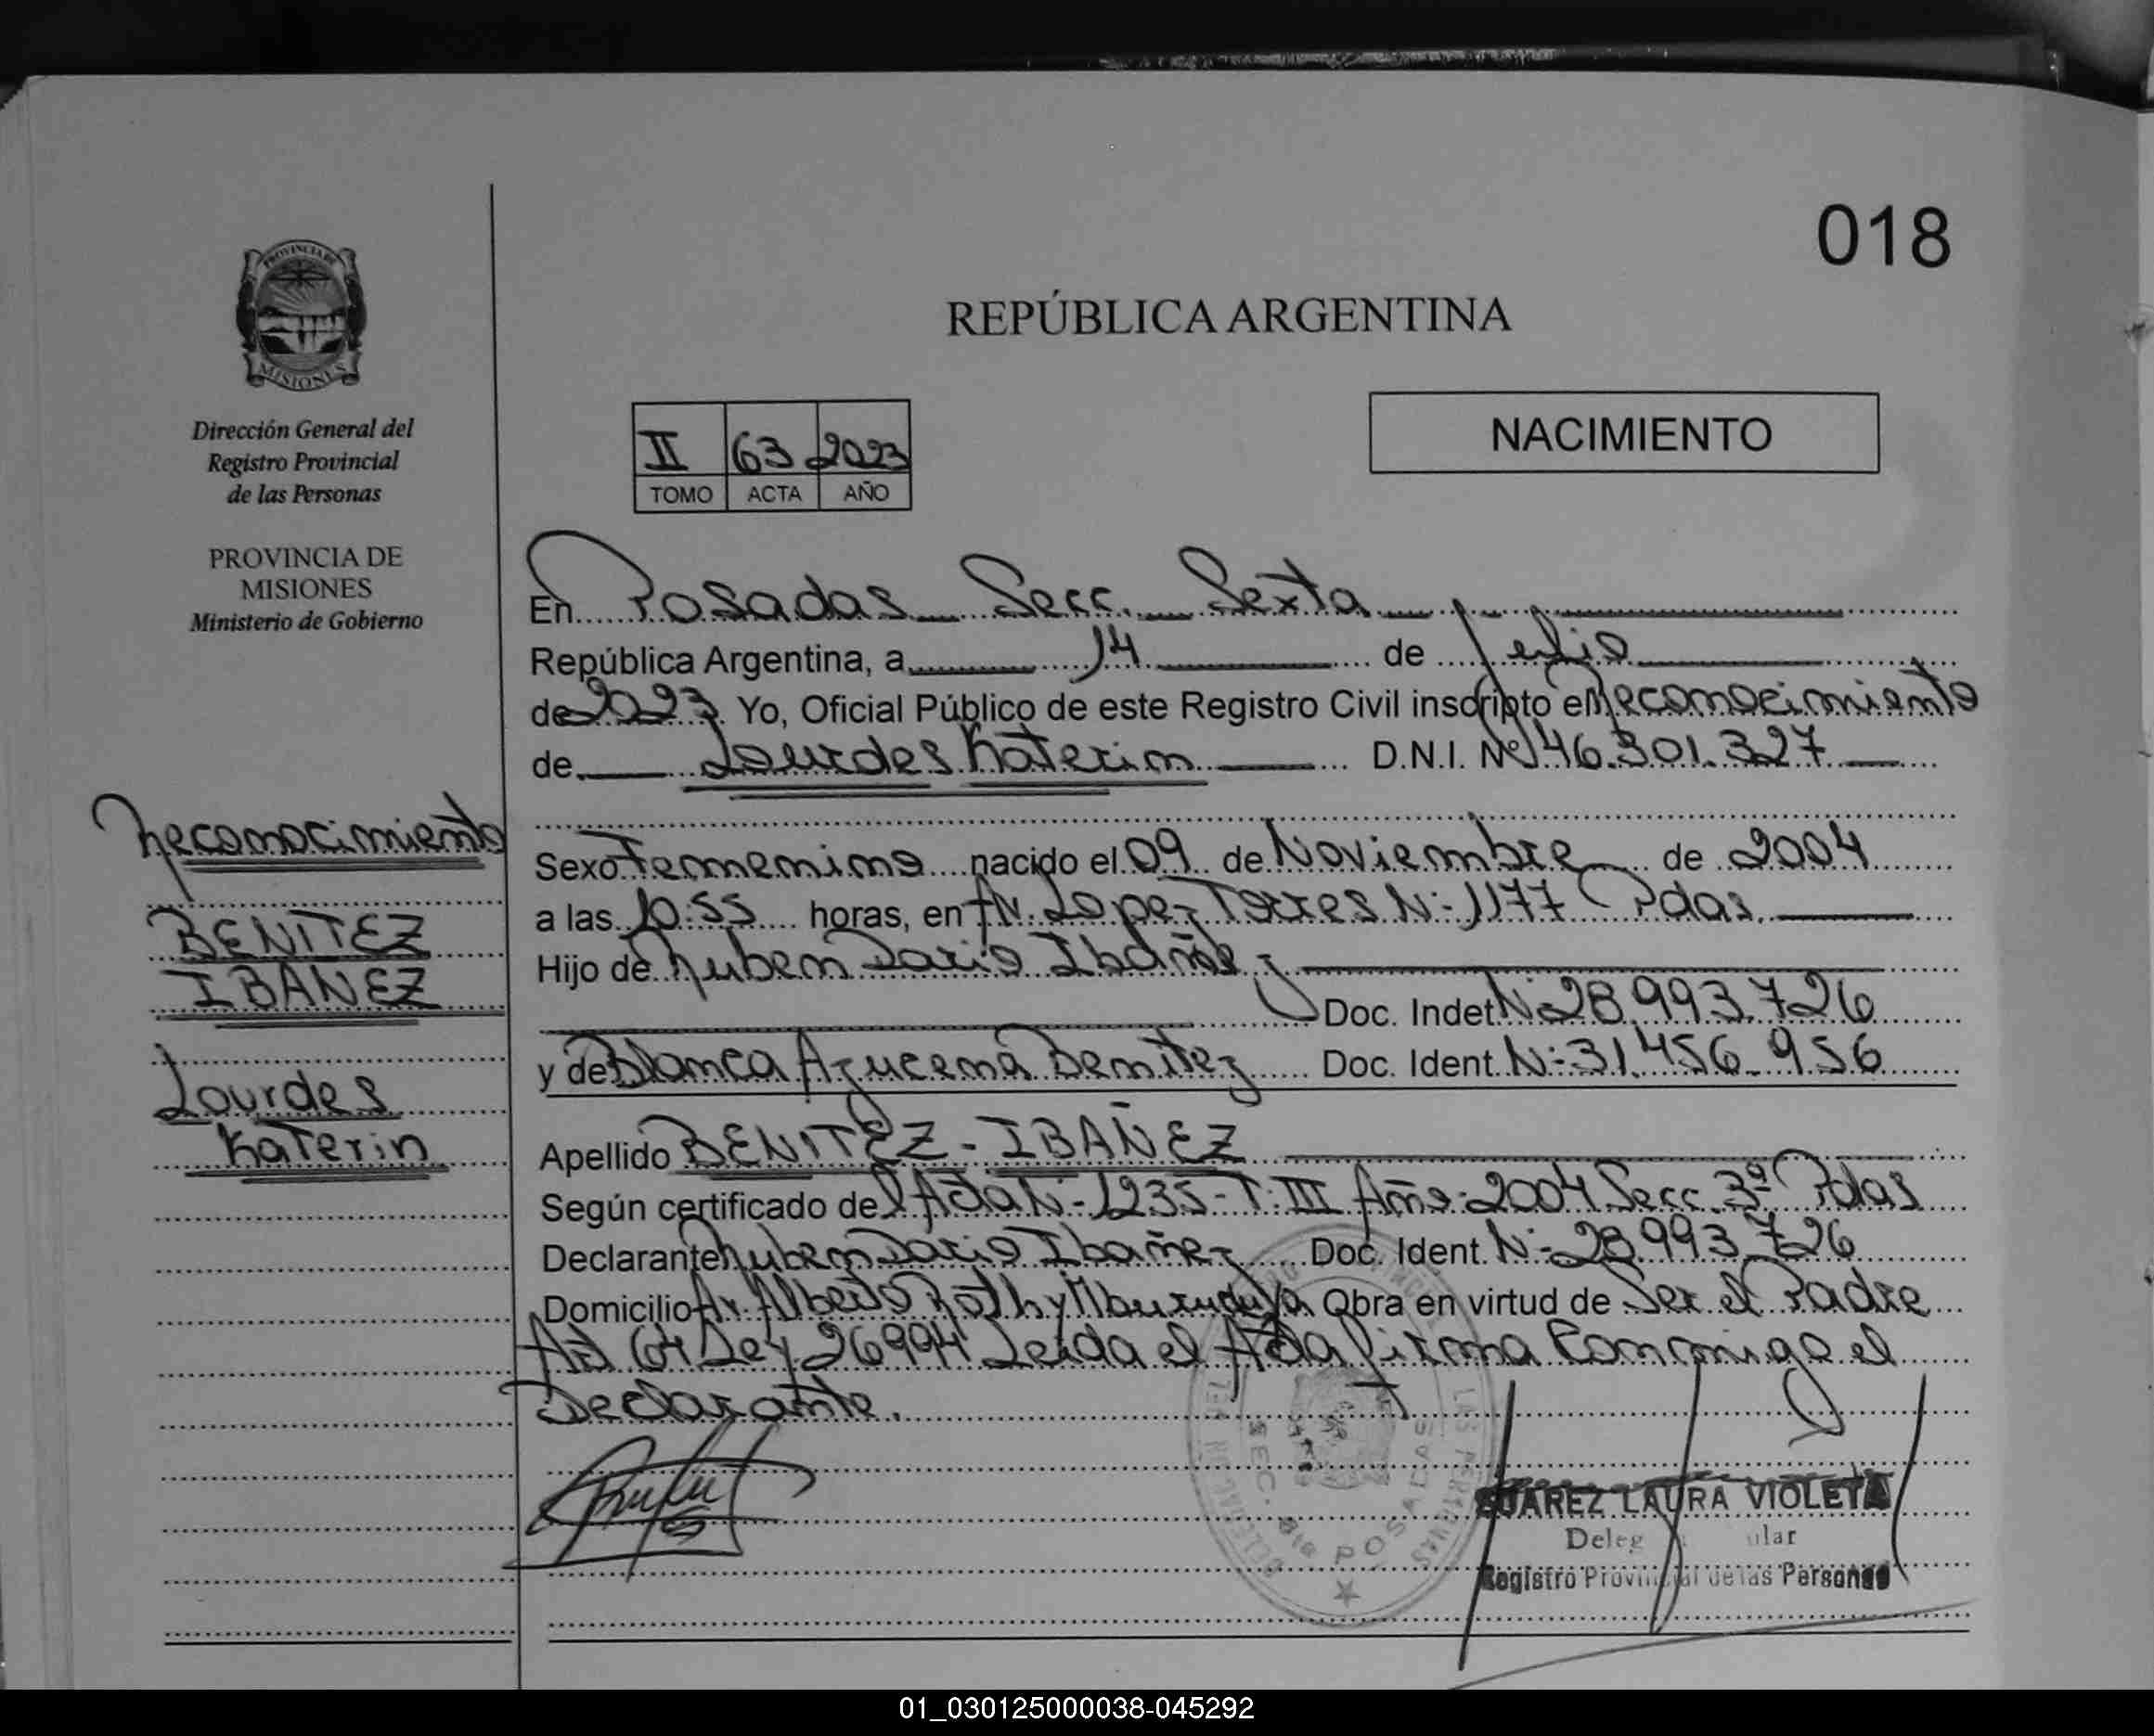 018
PROVINCIA DE
MISIONES
REPÚBLICA ARGENTINA
Dirección General del
Registro Provincial
de las Personas
PROVINCIA DE
MISIONES
Ministerio de Gobierno
II 63 2023
TOMO ACTA AÑO
NACIMIENTO
En Posadas Secc. Sexta
República Argentina, a 14 de Julio
de 2023 Yo, Oficial Público de este Registro Civil inscripto el Reconocimiento
de Lourdes Katerin D.N.I. Nº 46.301.327
Reconocimiento
BENITEZ
IBAÑEZ
Lourdes
Katerin
Sexo Femenino nacido el 09 de Noviembre de 2004
a las 10:55 horas, en Av. Lopez Torres N: 1177 Pdas.
Hijo de Ruben Dario Ibañez
Doc. Indet N: 28.993.726
y de Blanca Azucena Benitez Doc. Ident. N: 31.456.956
Apellido BENITEZ - IBAÑEZ
Según certificado del Acta N: 1235 - T: III Año: 2004 Secc. 3ª Pdas
Declarante Ruben Dario Ibañez Doc. Ident. N: 28.993.726
Domicilio Av. Alberto Roth y Mburucuya Obra en virtud de Ser el Padre
Art 64 Ley 26994 Leida el Acta firma Conmigo el
Declarante.
SEC. 6ta POSADAS
SUAREZ LAURA VIOLETA
Registro Provincial de las Personas
01_030125000038-045292